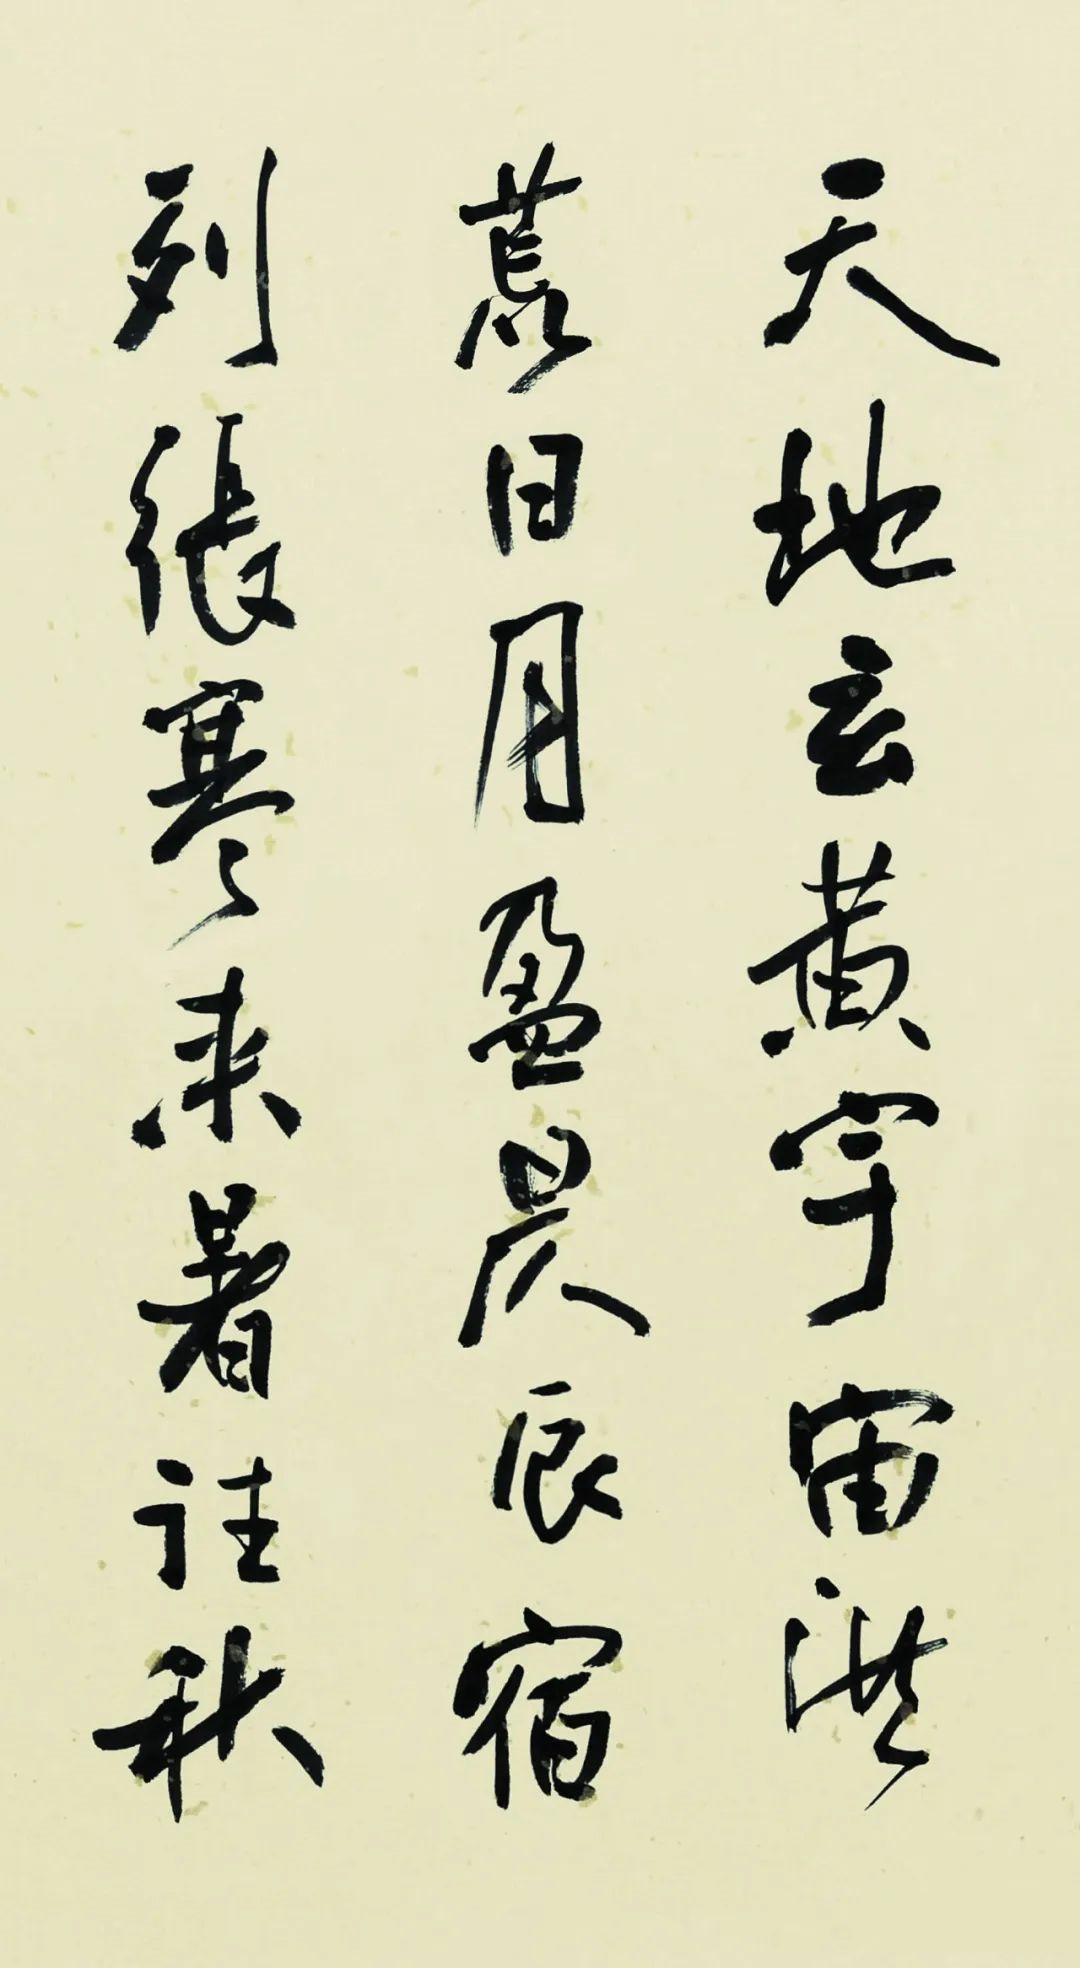 天地玄黄宇宙洪
荒日月盈昃辰宿
列張寒来暑往秋